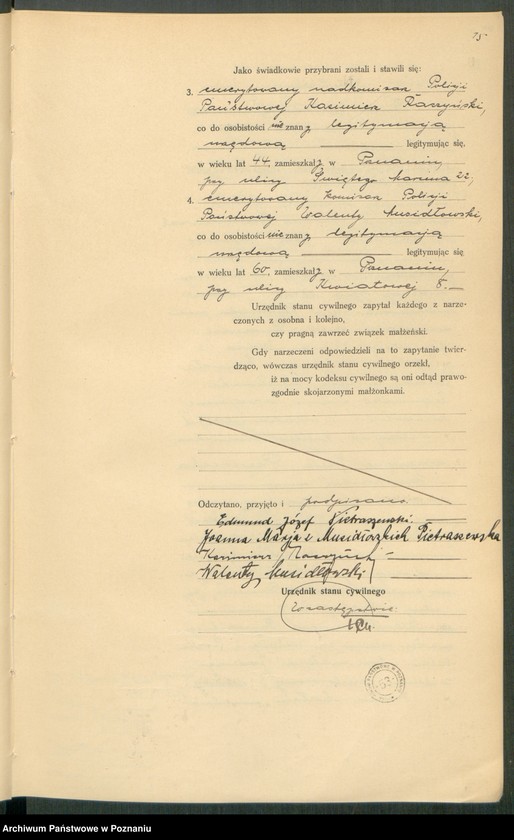 Jako świadkowie przybrani zostali i stawili się:
3. emerytowany nadkomisarz Policji
Państwowej Kazimierz Raszyński,
co do osobistości nieznany legitymacją
urzędową legitymując się,
w wieku lat 44, zamieszkały w Poznaniu,
przy ulicy Świętego Marcina 22;
4. emerytowany komisarz Policji
Państwowej Walenty Musidłowski,
co do osobistości nieznany legitymacją
urzędową legitymując się
w wieku lat 60, zamieszkały w Poznaniu,
przy ulicy Kwiatowej 8.
Urzędnik stanu cywilnego zapytał każdego z narze-
czonych z osobna i kolejno,
czy pragną zawrzeć związek małżeński.
Gdy narzeczeni odpowiedzieli na to zapytanie twier-
dząco, wówczas urzędnik stanu cywilnego orzekł,
iż na mocy kodeksu cywilnego są oni odtąd prawo-
zgodnie skojarzonymi małżonkami.
Odczytano, przyjęto i podpisano.
Edmund Józef Pietraszewski.
Joanna Marja z Musidłowskich Pietraszewska
Kazimierz
Walenty Musidłowski
Urzędnik stanu cywilnego
W zastępstwie:
Archiwum Państwowe w Poznaniu